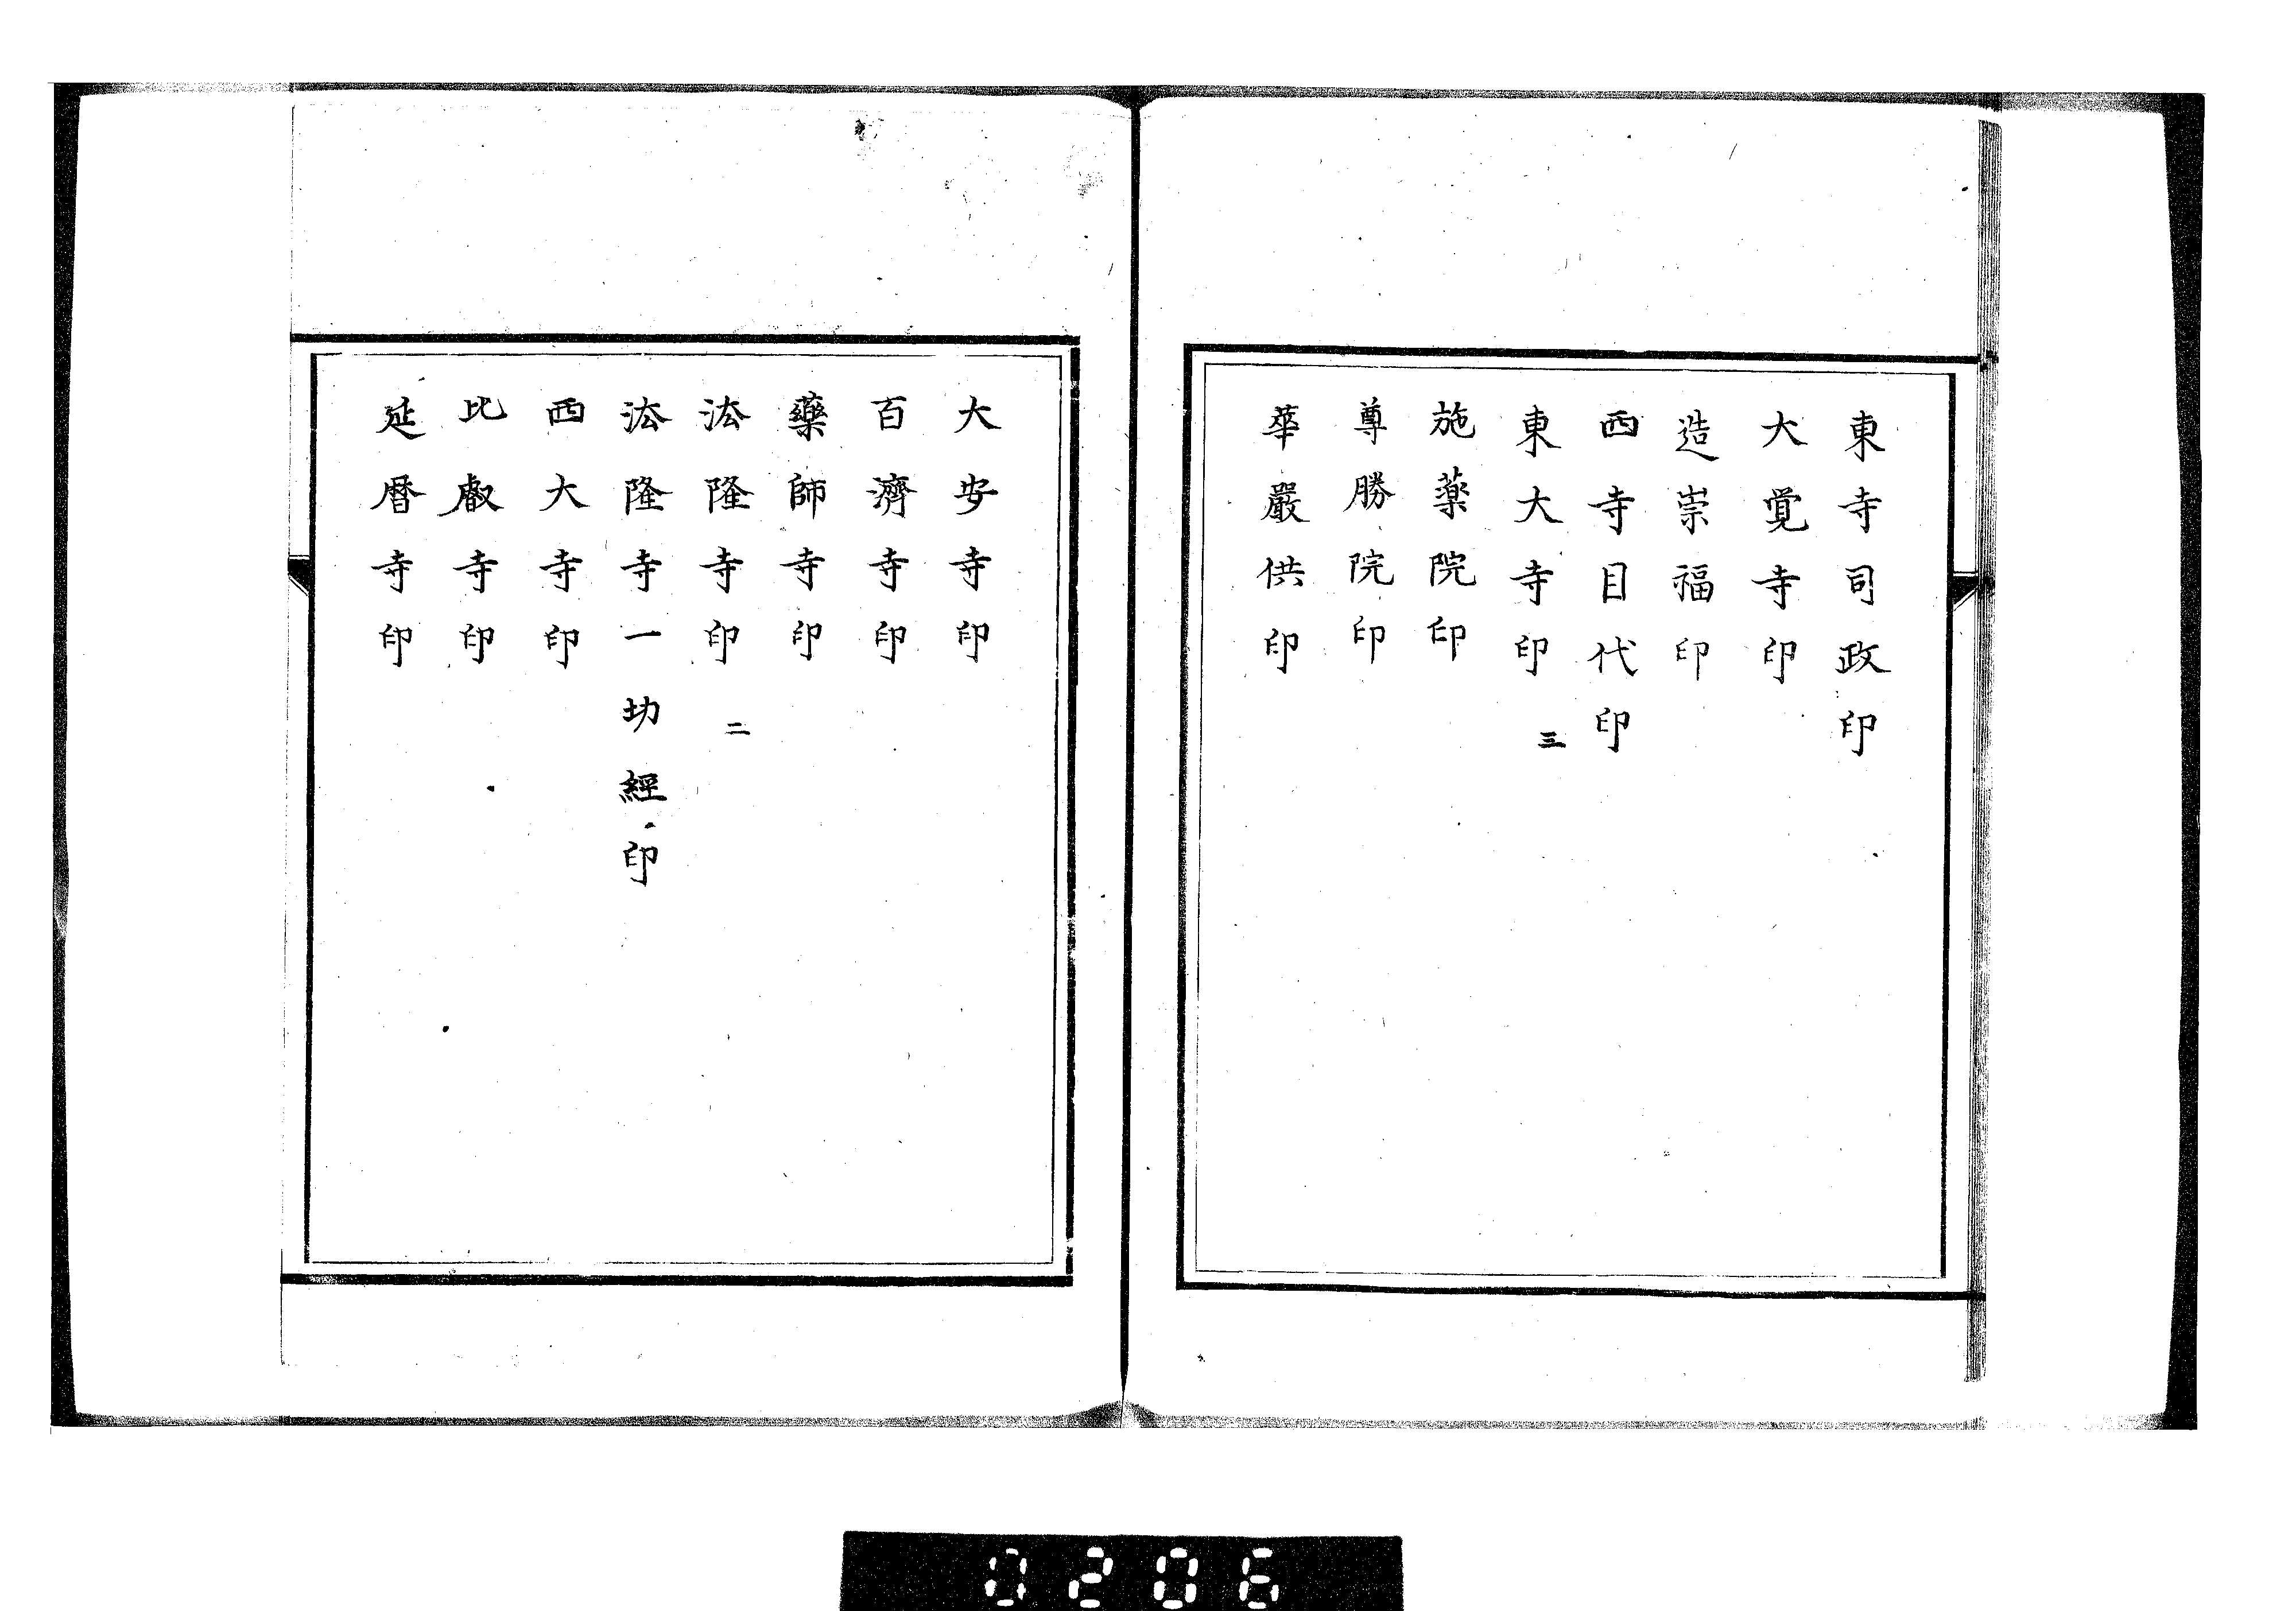 東寺司政印
大覚寺印
造崇福印
西寺目代印
東大寺印 三
施薬院印
尊勝院印
華嚴供印
大安寺印
百濟寺印
藥師寺印
法隆寺印 二
法隆寺一切經印
西大寺印
比叡寺印
延暦寺印
0206